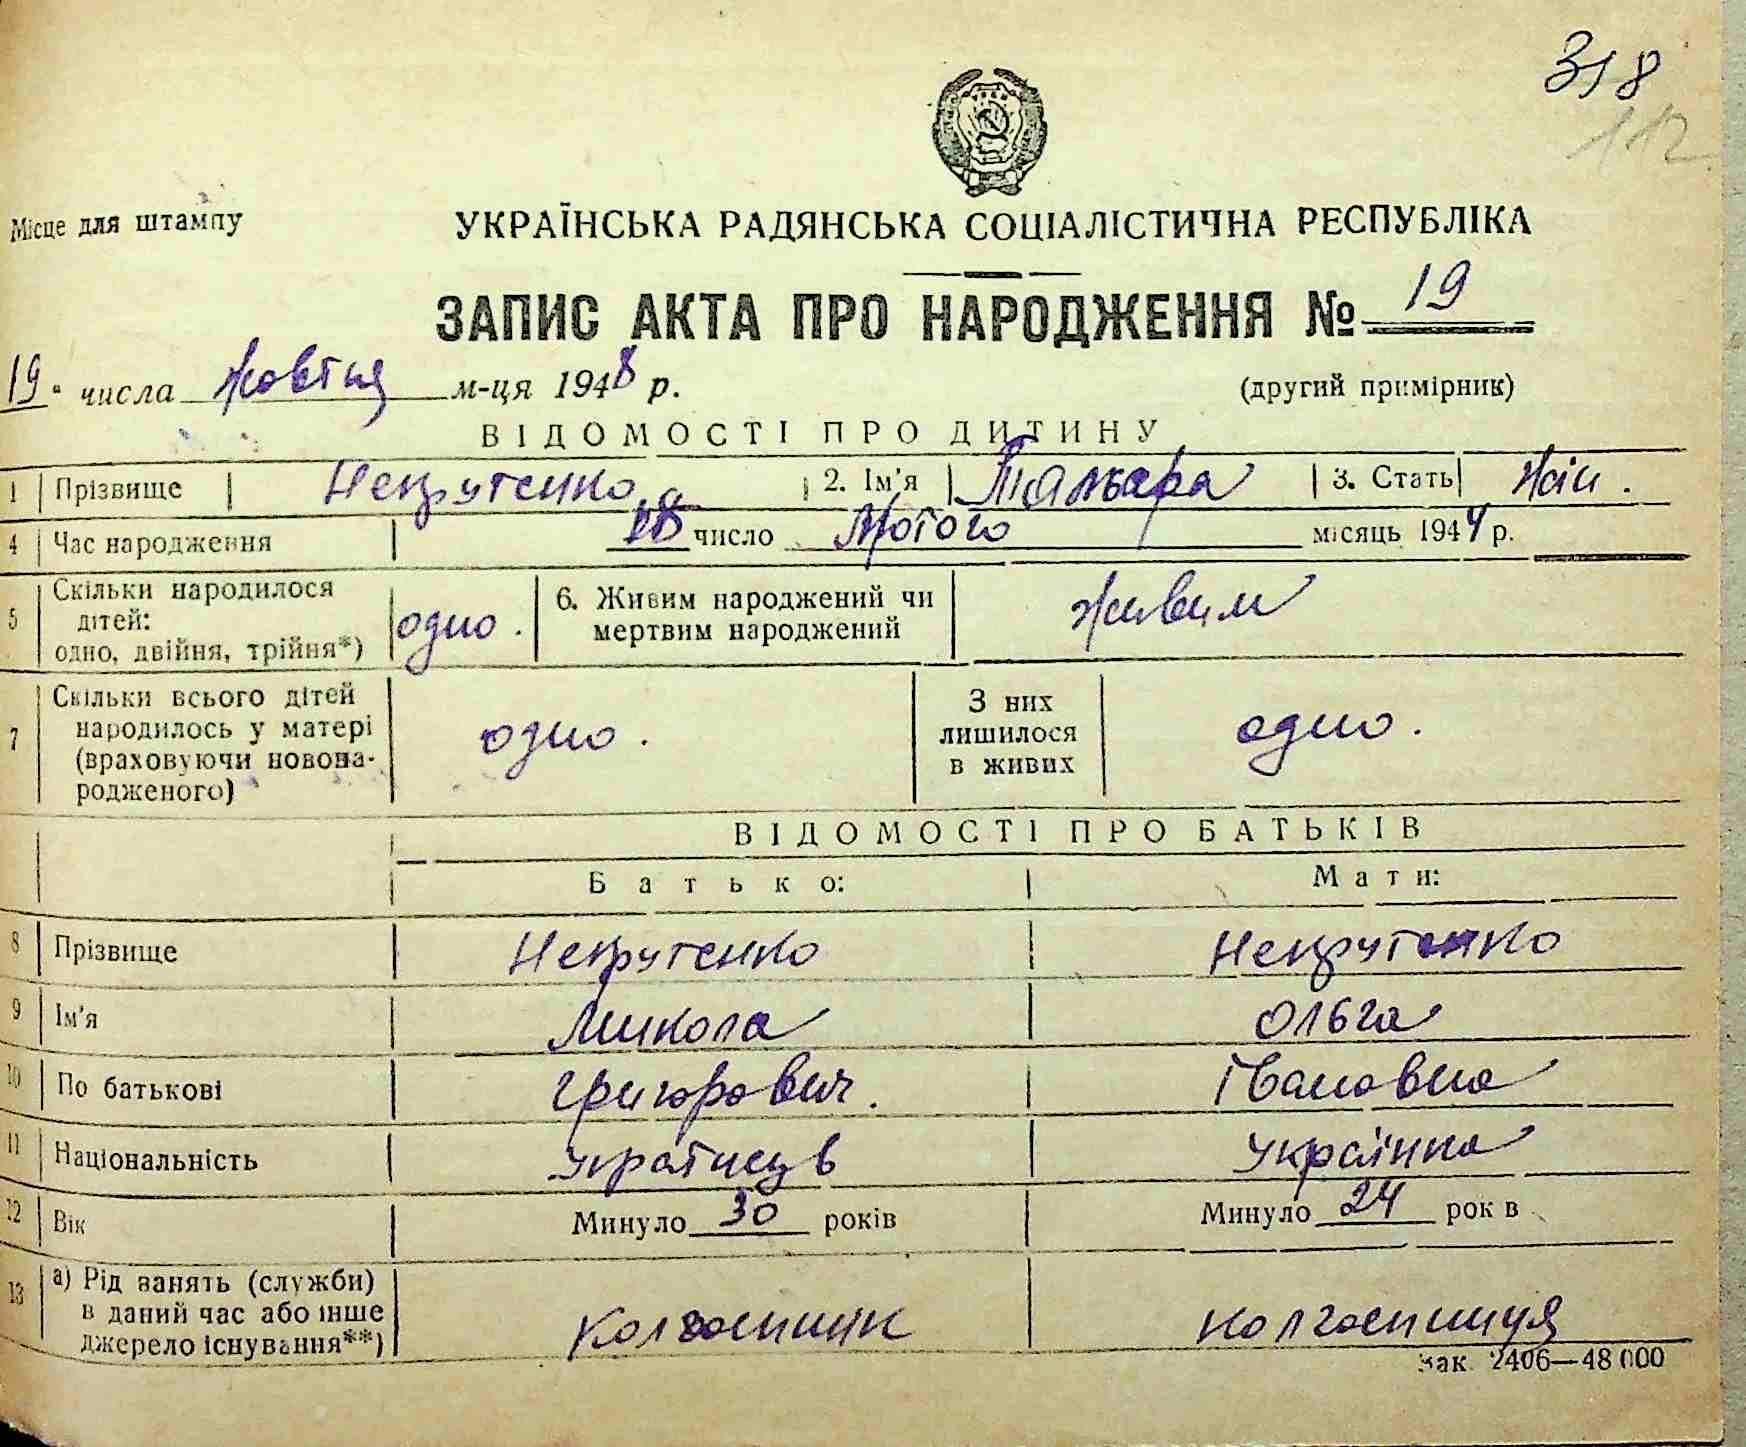 318
112
Місце для штампу
УКРАЇНСЬКА РАДЯНСЬКА СОЦІАЛІСТИЧНА РЕСПУБЛІКА
ЗАПИС АКТА ПРО НАРОДЖЕННЯ № 19
19 числа жовтня м-ця 1948 р. (другий примірник)
ВІДОМОСТІ ПРО ДИТИНУ
1 Прізвище Некрутенко 2. Ім'я Тамара 3. Стать жін.
4 Час народження 28 число Лютого місяць 1944 р.
5 Скільки народилося дітей: одно, двійня, трійня*) одно. 6. Живим народжений чи мертвим народжений живим
7 Скільки всього дітей народилось у матері (враховуючи новонародженого) одно. З них лишилося в живих одно.
ВІДОМОСТІ ПРО БАТЬКІВ
Батько: Мати:
8 Прізвище Некрутенко Некрутенко
9 Ім'я Микола Ольга
10 По батькові Григорович. Івановна
11 Національність українець Українка
12 Вік Минуло 30 років Минуло 24 рок в
13 а) Рід занять (служби) в даний час або інше джерело існування**) колгоспник колгоспниця
Зак. 2406—48 000